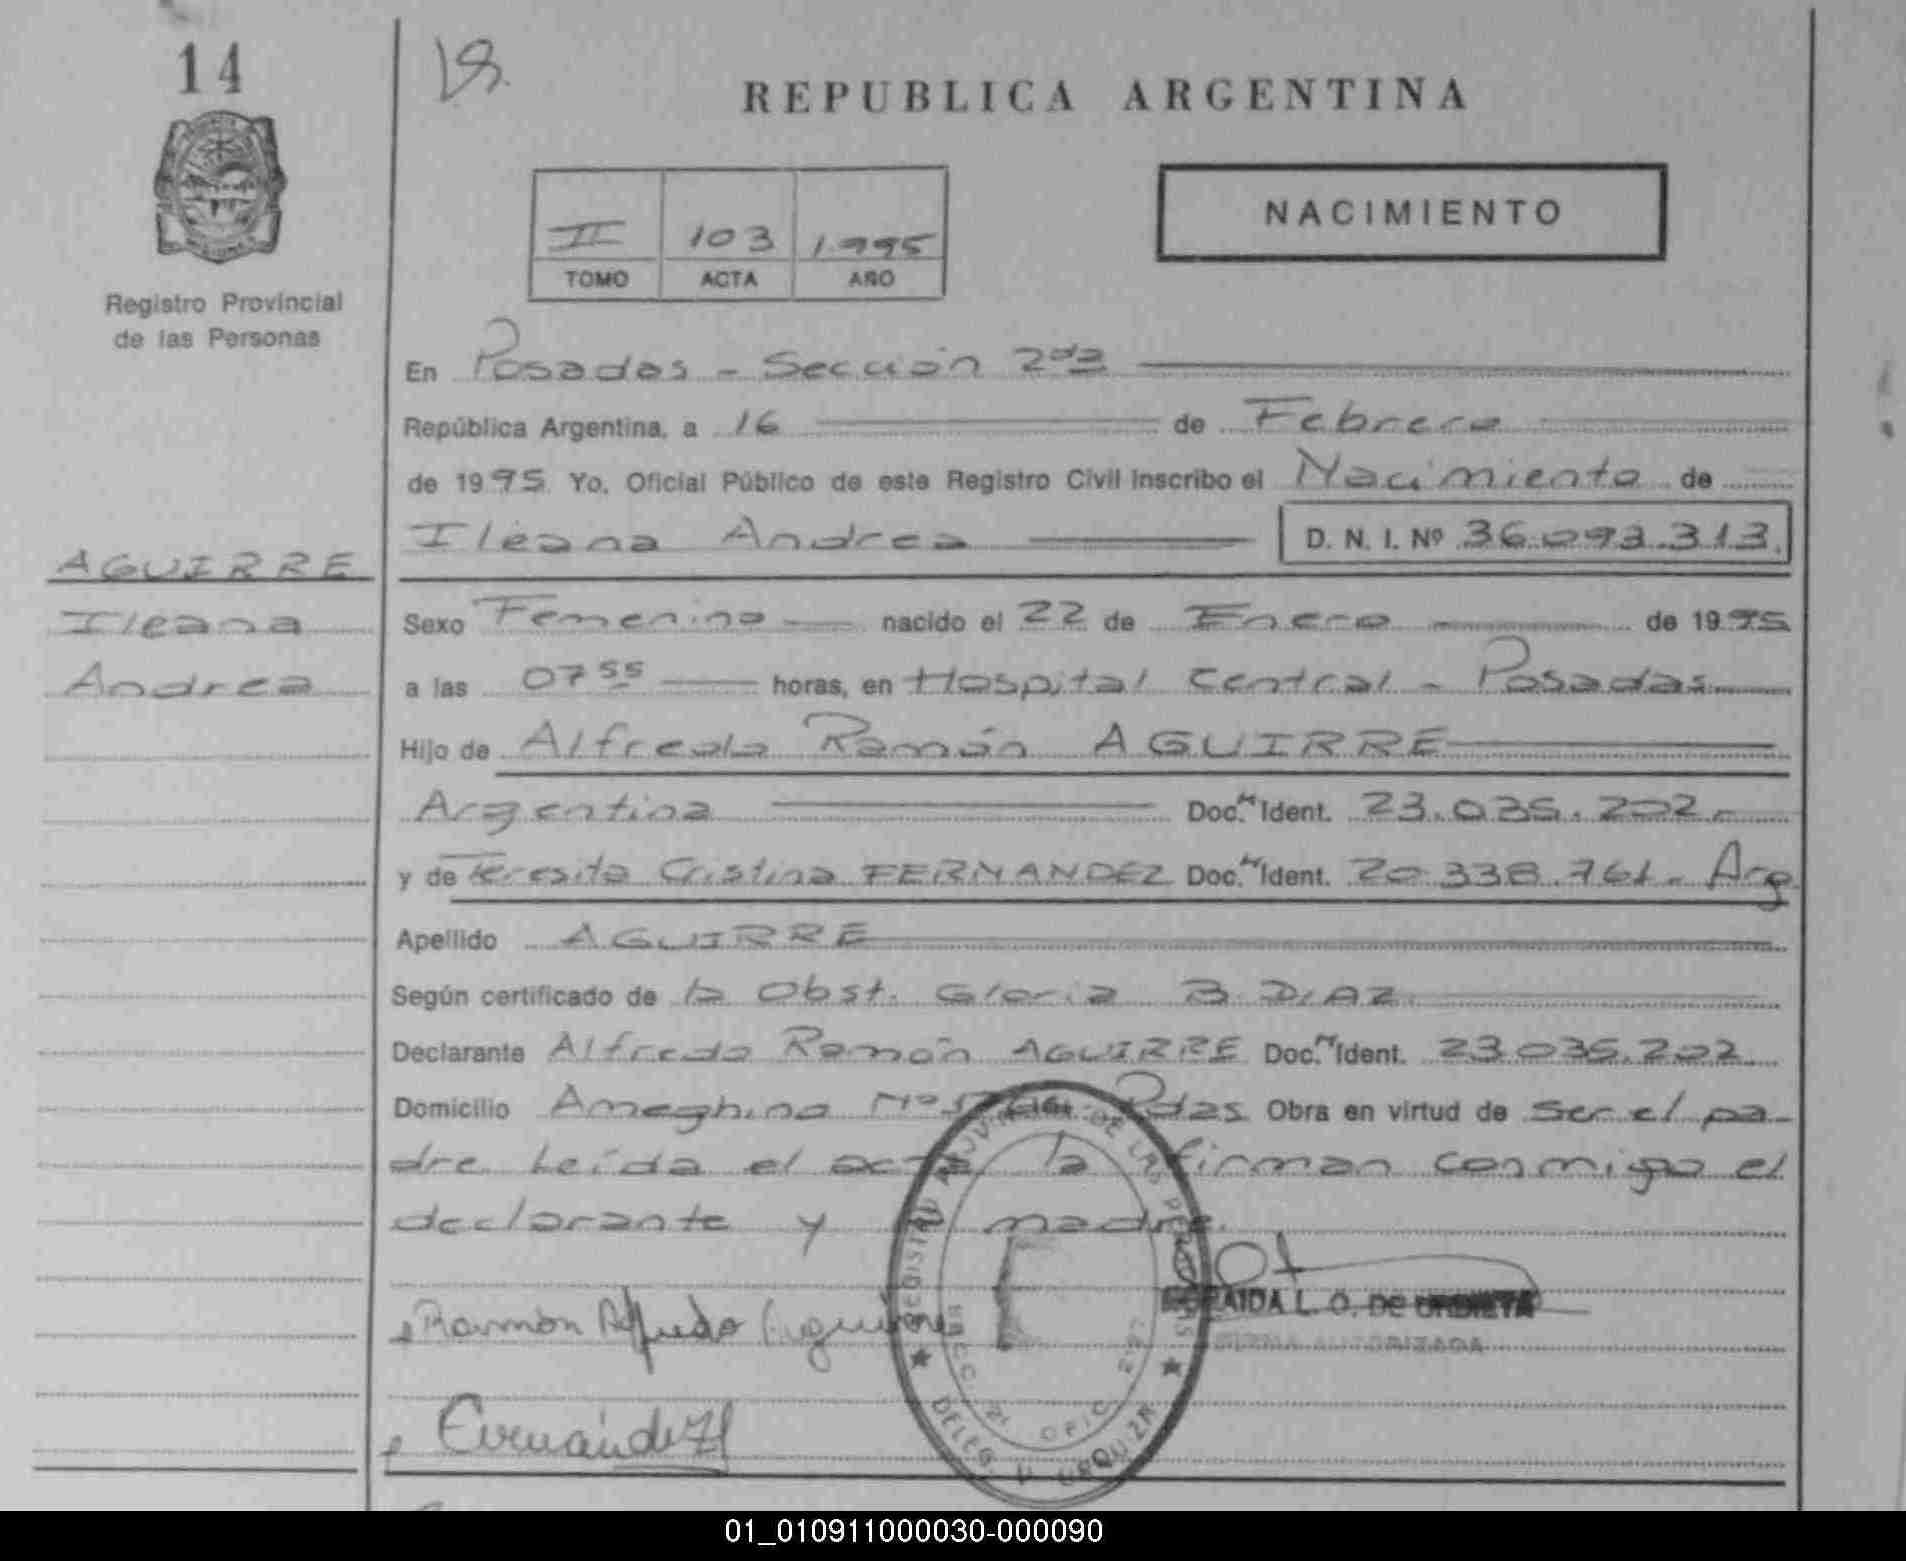 14
REPUBLICA ARGENTINA
NACIMIENTO
II 103 1.995
TOMO ACTA AÑO
Registro Provincial
de las Personas
En Posadas - Sección 2da
República Argentina, a 16 de Febrero
de 1995 Yo, Oficial Público de este Registro Civil inscribo el Nacimiento de
Ileana Andrea D. N. I. Nº 36.093.313.
AGUIRRE
Ileana
Andrea
Sexo Femenino nacido el 22 de Enero de 1995
a las 07 55 horas, en Hospital Central - Posadas
Hijo de Alfredo Ramón AGUIRRE
Argentina Doc. Ident. 23.035.202.-
y de Teresita Cristina FERNANDEZ Doc. Ident. 20.338.761.- Arg
Apellido AGUIRRE
Según certificado de la Obst. Gloria B. DIAZ.
Declarante Alfredo Ramón AGUIRRE Doc. Ident. 23.035.202
Domicilio Ameghino Nº Pdas Obra en virtud de ser el pa-
dre Leída el acta la firman conmigo el
declarante y la madre.
Ramón Alfredo Aguirre
L. O. DE URBIETA
FIRMA AUTORIZADA
REGISTRO PROVINCIAL DE LAS PERSONAS
DELEG. V. URQUIZA
OFIC.
01_010911000030-000090